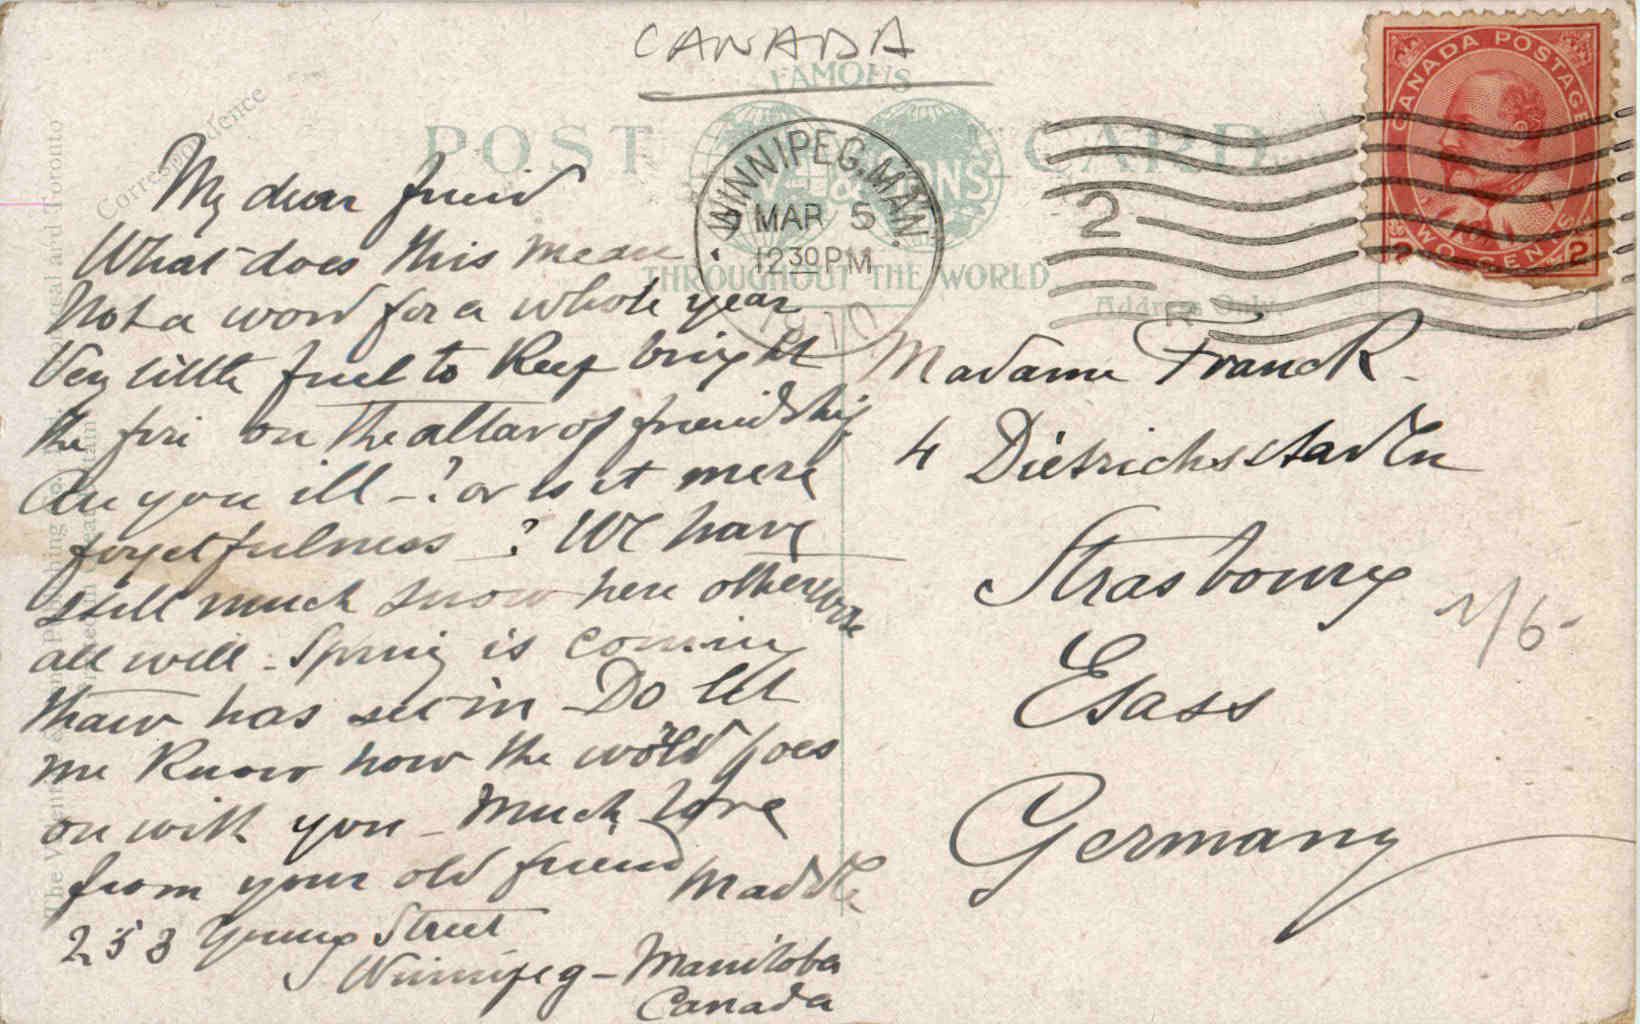 CANADA
FAMOUS
POST CARD
THROUGHOUT THE WORLD
Correspondence
Address Only
WINNIPEG, MAN.
MAR 5
12 30 PM
1910
2
CANADA POSTAGE
2 TWO CENTS 2
My dear friend
What does this mean
Not a word for a whole year
Very little fuel to Keep bright
the fire on the altar of friendship
Are you ill - ? or is it mere
forgetfulness ? We have
still much snow here otherwise
all well - Spring is coming
thaw has set in - Do let
me Know how the world goes
on with you - Much love
from your old friend
253 Young Street
Winnipeg - Manitoba
Canada
Madame Franck
4 Dietrichstadten
Strasbourg
Elsass
Germany